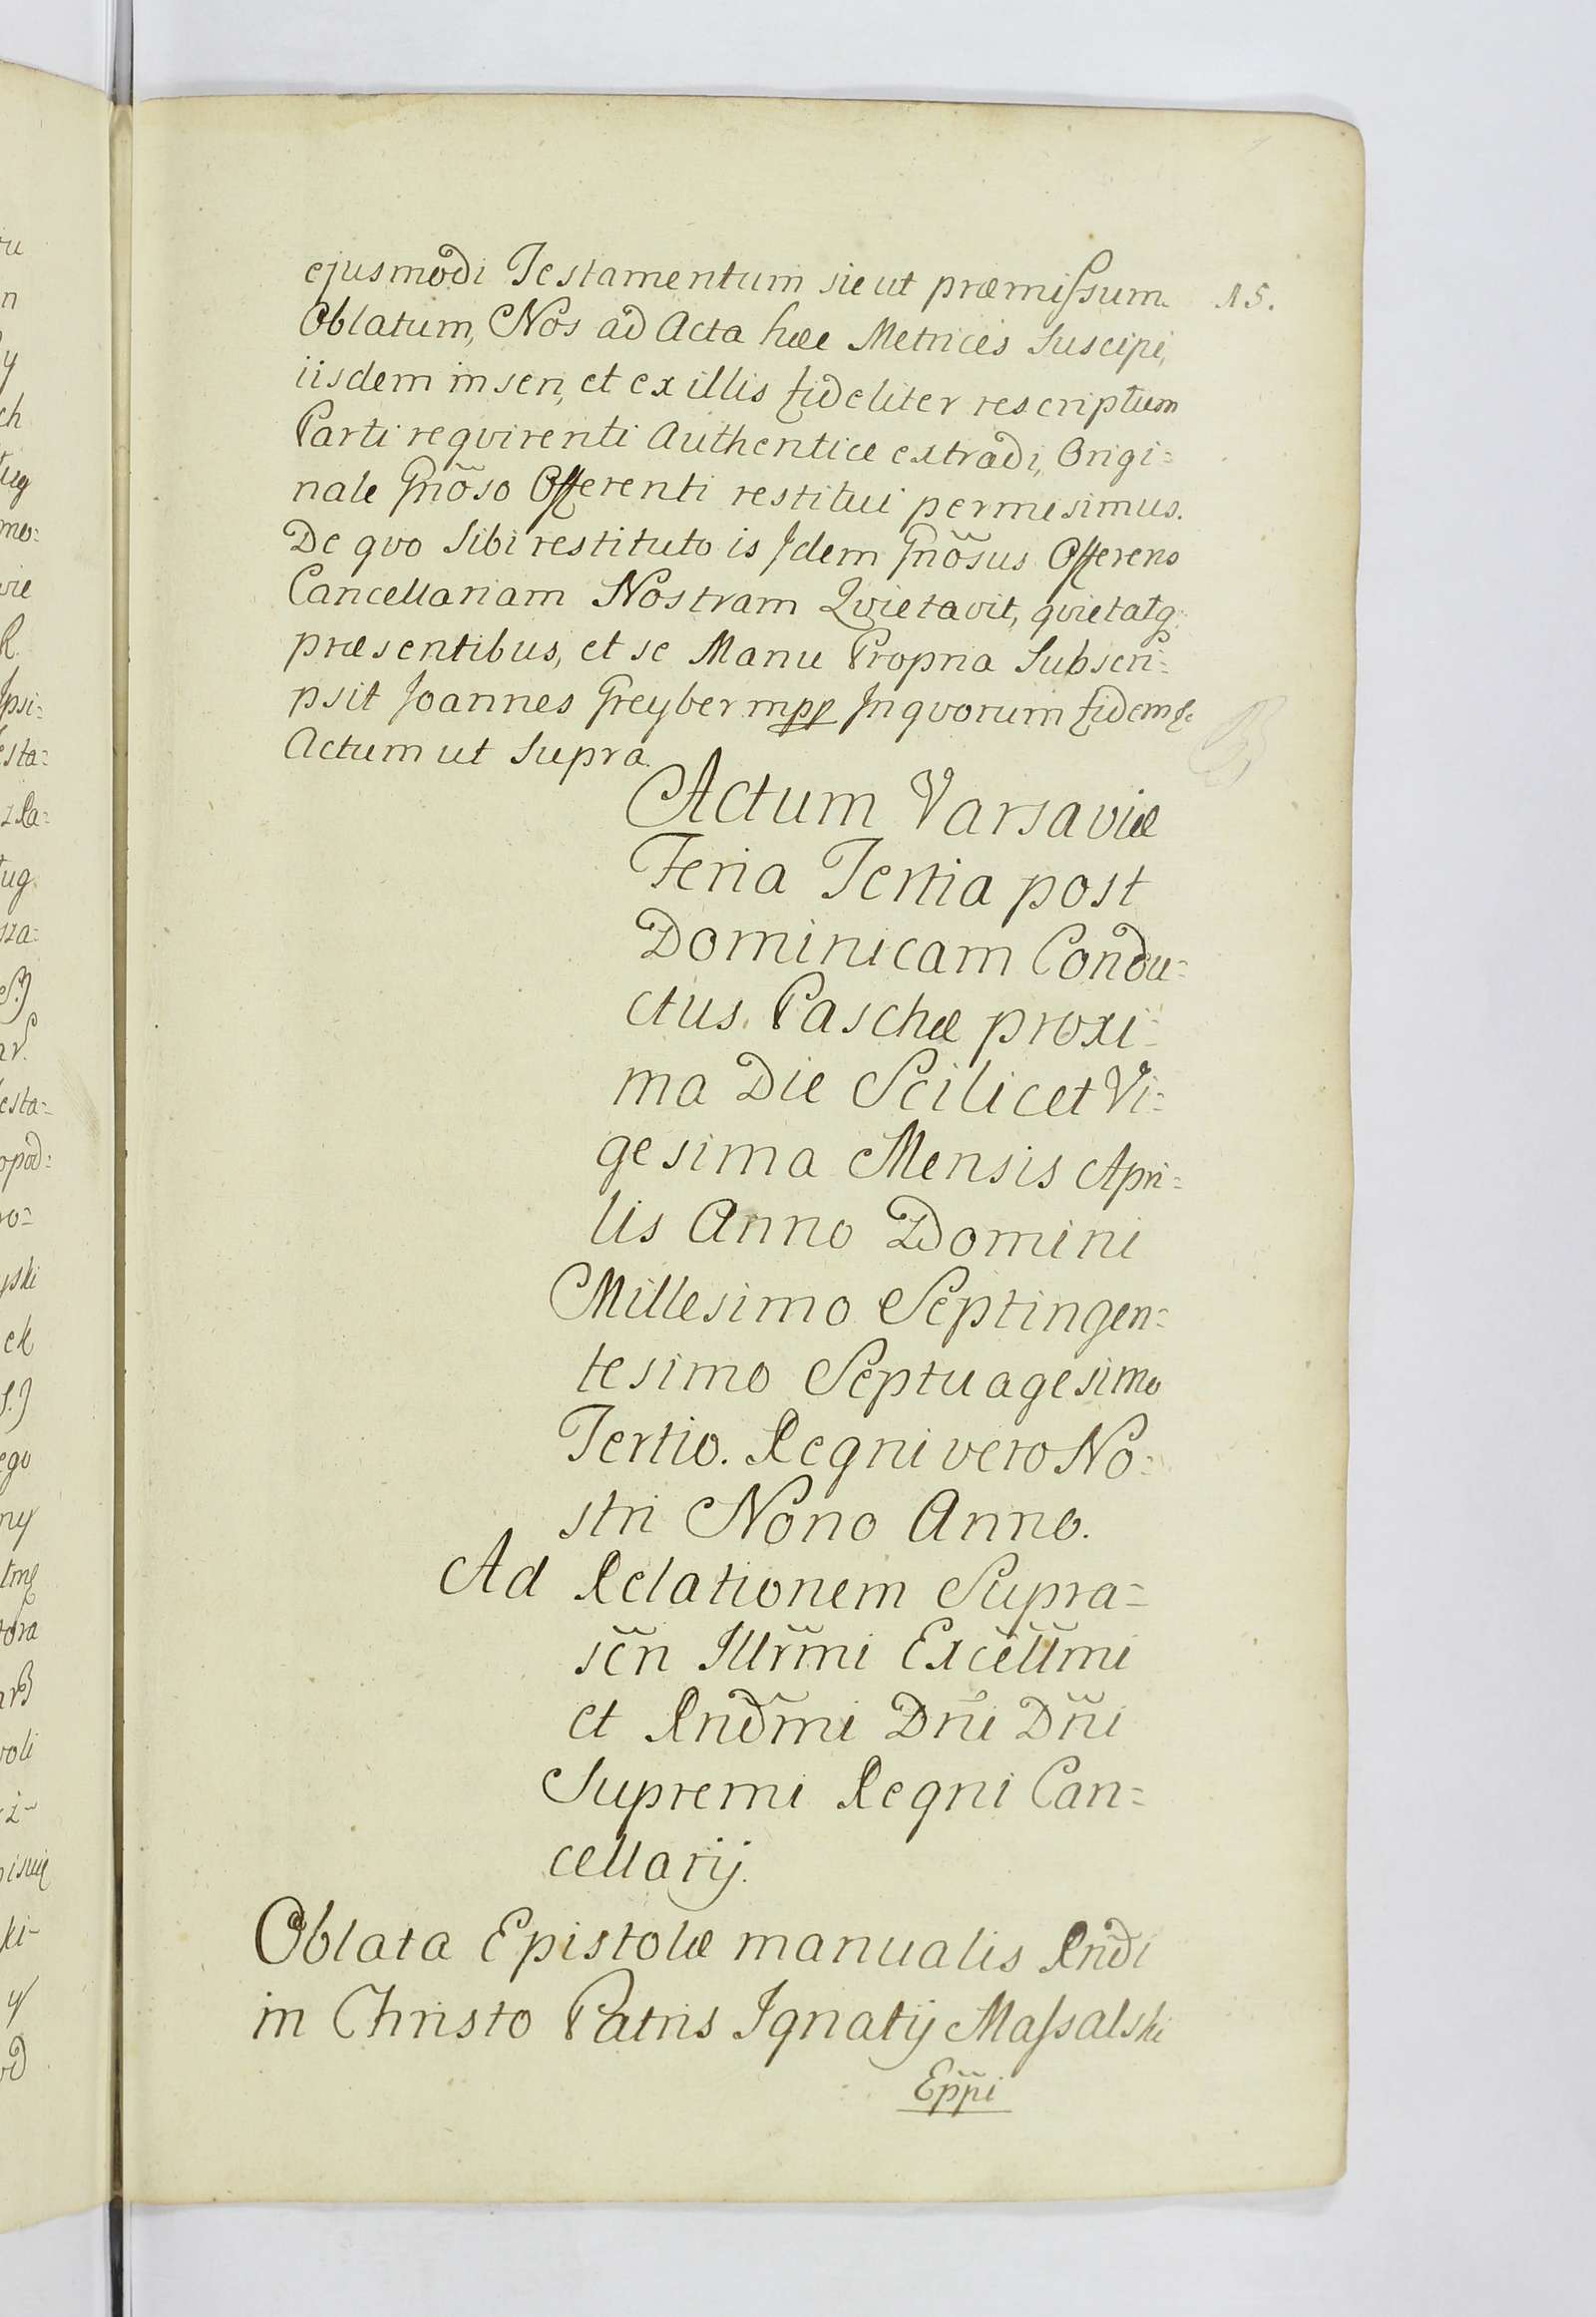 15.
ejusmodi Testamentum sicut præmissum
Oblatum, Nos ad Acta hæc Metrices Suscipi,
iisdem inseri, et ex illis fideliter rescriptum
Parti reqvirenti Authentice extradi, Origi=
nale Gnõso Offerenti restitui permisimus.
De qvo Sibi restituto is Idem Gnõsus Offerens
Cancellariam Nostram Qvietavit, qvietatq.
præsentibus, et se Manu Propria Subscri=
psit Joannes Greyber mpp In qvorum fidem &
Actum ut Supra.
Actum Varsaviæ
Feria Tertia post
Dominicam Condu=
ctus Paschæ proxi=
ma Die Scilicet Vi=
gesima Mensis Apri=
lis Anno Domini
Millesimo Septingen=
tesimo Septuagesimo
Tertio. Regni vero No=
stri Nono Anno.
Ad Relationem Supra=
scñ Illrm̃i Excell̃mi
et Rnd̃mi Dñi Dñi
Supremi Regni Can=
cellarij.
Oblata Epistolæ manualis Rñdi
in Christo Patris Ignatij Massalski
Epp̃i